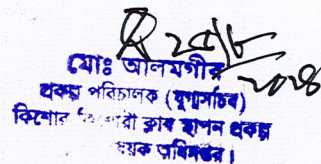 ২৫/৮
২০২৪
মোঃ আলমগীর
প্রকল্প পরিচালক (যুগ্মসচিব)
কিশোর কিশোরী ক্লাব স্থাপন প্রকল্প
অধিদপ্তর।